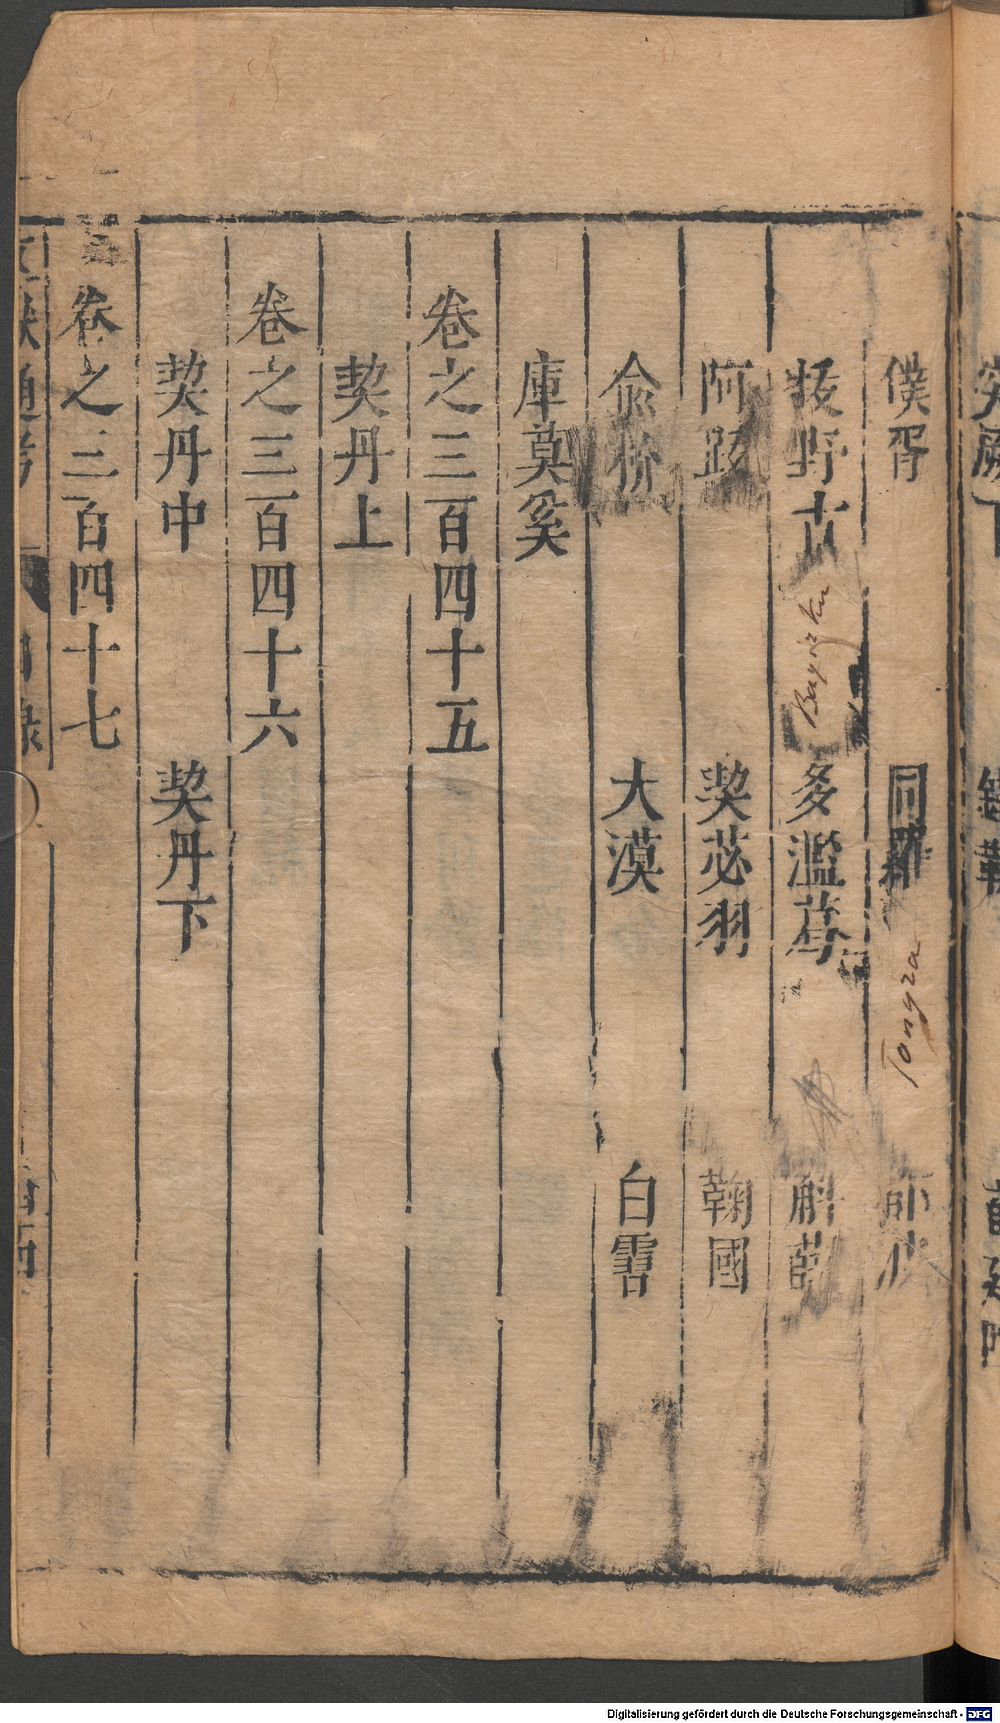 僕骨 同羅 都
Tongra
拔野古 多濫葛 斛薛
Bayirku
阿跌 契苾羽 鞠國
俞 大漠 白霫
庫莫奚
卷之三百四十五
契丹上
卷之三百四十六
契丹中 契丹下
卷之三百四十七
文獻通考 目錄
Digitalisierung gefördert durch die Deutsche Forschungsgemeinschaft - DFG